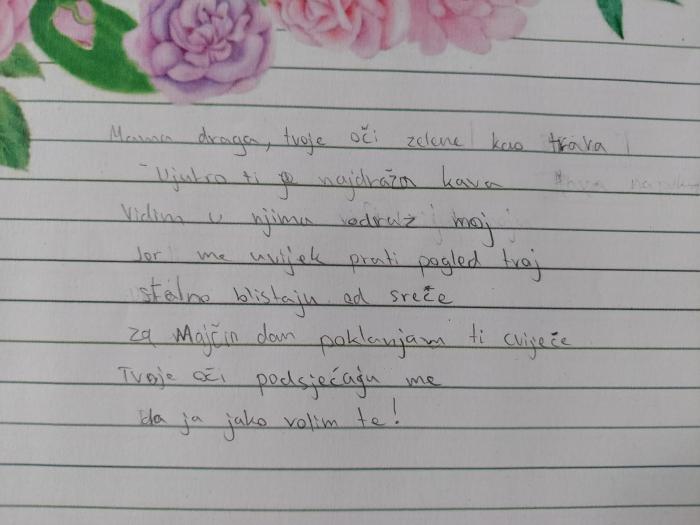 Mama draga, tvoje oči zelene kao trava
Ujutro ti je najdraža kava
Vidim u njima odraz moj
Jer me uvijek prati pogled tvoj
stalno blistaju od sreče
za Majčin dan poklanjam ti cvijeće
Tvoje oči podsjećaju me
da ja jako volim te!